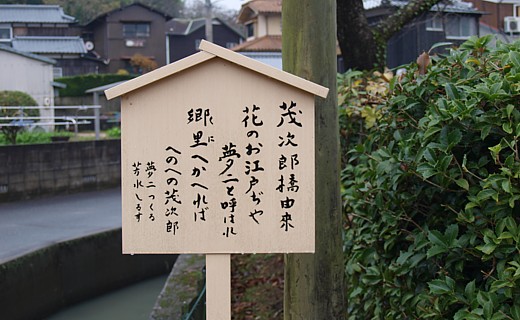 茂次郎橋由來
花のお江戸ぢや
夢二と呼ばれ
郷里へかへれば
くに
へのへの茂次郎
夢二つくる
芳水しるす